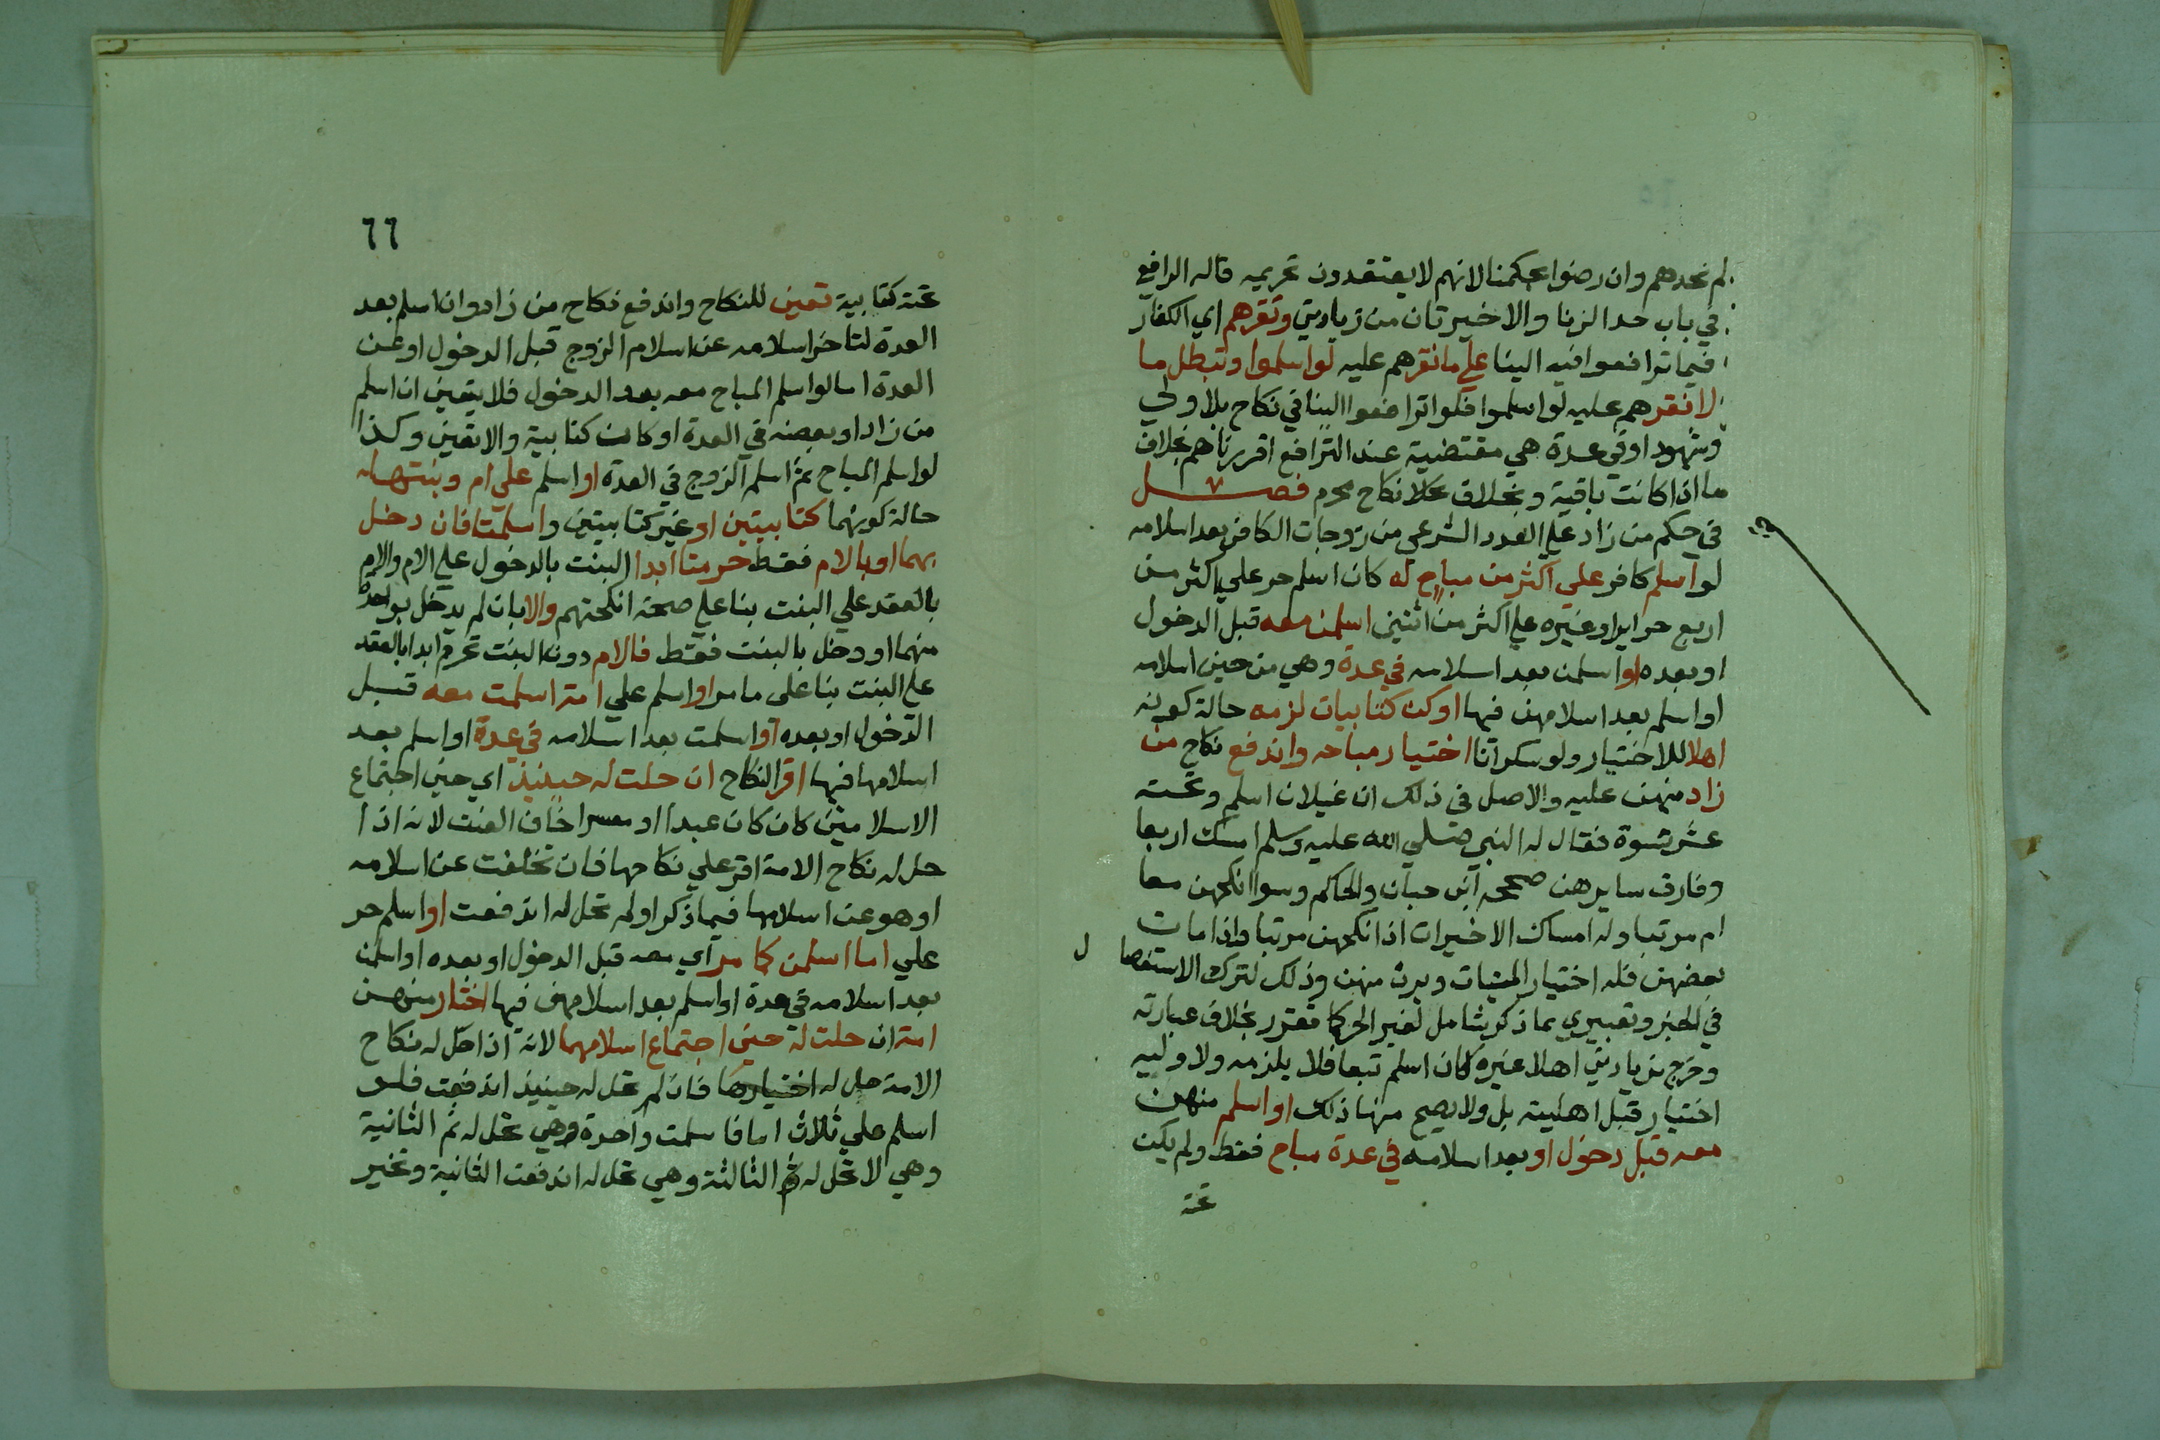 لم نحدهم وان رضوا بحكمنا لانهم لا يعتقدون تحريمه قاله الرافعي
في باب حد الزنا والاخيرتان من زيادتي ونقرهم اي الكفار
فيما ترافعوا فيه الينا علي ما نقرهم عليه لو اسلموا ونبطل ما
لا نقرهم عليه لو اسلموا فلو ترافعوا الينا في نكاح بلا ولي
وشهود او في عدة هي مقتضية عند الترافع اقررناهم بخلاف
ما اذا كانت باقية وبخلاف نكاح محرم فصل
في حكم من زاد علي العدد الشرعي من زوجات الكافر بعد اسلامه
لو اسلم كافر علي اكثر من مباح له كان اسلم حر علي اكثر من
اربع حراير او غيره علي اكثر من اثنتين اسلمن معه قبل الدخول
او بعده او اسلمن بعد اسلامه في عدة وهي من حين اسلامه
او اسلم بعد اسلامهن فيها او كن كتابيات لزمه حالة كونه
اهلا للاختيار ولو سكرانا اختيار مباحه واندفع نكاح من
زاد منهن عليه والاصل في ذلك ان غيلان اسلم وتحته
عشر نسوة فقال له النبي صلي الله عليه وسلم امسك اربعا
وفارق سايرهن صححه ابن حبان والحاكم وسوا انكحهن معا
ام مرتبا وله امساك الاخيرات اذا نكحهن مرتبا واذا مات
بعضهن فله اختيار الميتات ويرث منهن وذلك لترك الاستفصا ل
في الخبر وتعبيري بما ذكر شامل لغير الحر كما تقرر بخلاف عبارته
وخرج بزيادتي اهلا غيره كان اسلم تبعا فلا يلزمه ولا وليه
اختيار قبل اهليته بل ولا يصح منهما ذلك او اسلم منهن
معه قبل دخول او بعد اسلامه في عدة مباح فقط ولم يكن
تحته
٦٦
تحته كتابية تعين للنكاح واندفع نكاح من زاد وان اسلم بعد
العدة لتاخر اسلامه عن اسلام الزوج قبل الدخول او عن
العدة اما لو اسلم المباح معه بعد الدخول فلا يتعين ان اسلم
من زاد او بعضه في العدة او كانت كتابية والا تعين وكذا
لو اسلم المباح ثم اسلم الزوج في العدة او اسلم علي ام وبنتها
حالة كونهما كتابيتين او غير كتابيتين واسلمتا فان دخل
بهما او بالام فقط حرمتا ابدا البنت بالدخول علي الام والام
بالعقد علي البنت بنا علي صحة انكحتهم والا بان لم يدخل بواحدة
منهما او دخل بالبنت فقط فالام دون البنت تحرم ابدا بالعقد
علي البنت بنا علي ما مر او اسلم علي امة اسلمت معه قبل
الدخول او بعده او اسلمت بعد اسلامه في عدة او اسلم بعد
اسلامها فيها اقر النكاح ان حلت له حينيذ اي حين اجتماع
الاسلامين كان كان عبدا او معسرا خاف العنت لانه اذا
حل له نكاح الامة اقر علي نكاحها فان تخلفت عن اسلامه
او هو عن اسلامها فيما ذكر او لم تحل له اندفعت او اسلم حر
علي اما اسلمن كما مر اي معه قبل الدخول او بعده او اسلمن
بعد اسلامه في عدة او اسلم بعد اسلامهن فيها اختار منهن
امة ان حلت له حين اجتماع اسلامهما لانه اذا حل له نكاح
الامة حل له اختيارها فان لم تحل له حينيذ اندفعت فلو
اسلم علي ثلاث اما فاسلمت واحدة وهي تحل له ثم الثانية
وهي لا تحل له ثم الثالثة وهي تحل له اندفعت الثانية وتخير